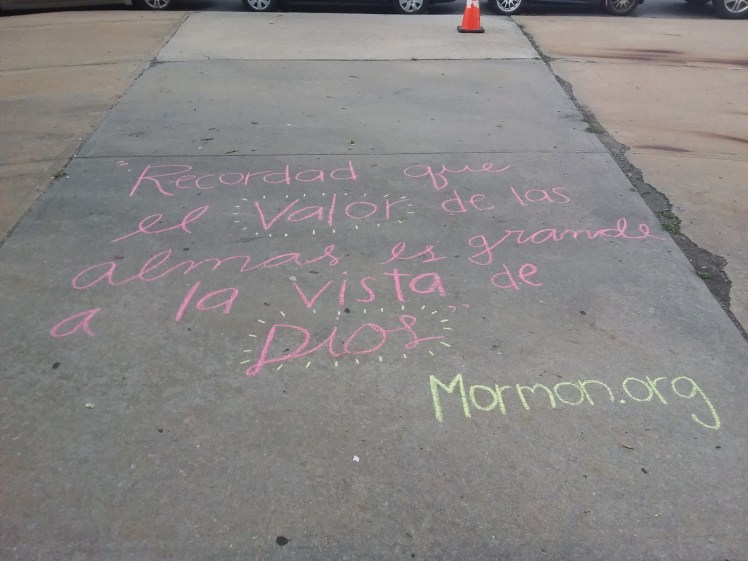 "Recordad que
el valor de las
almas es grande
a la vista de
Dios"
Mormon.org